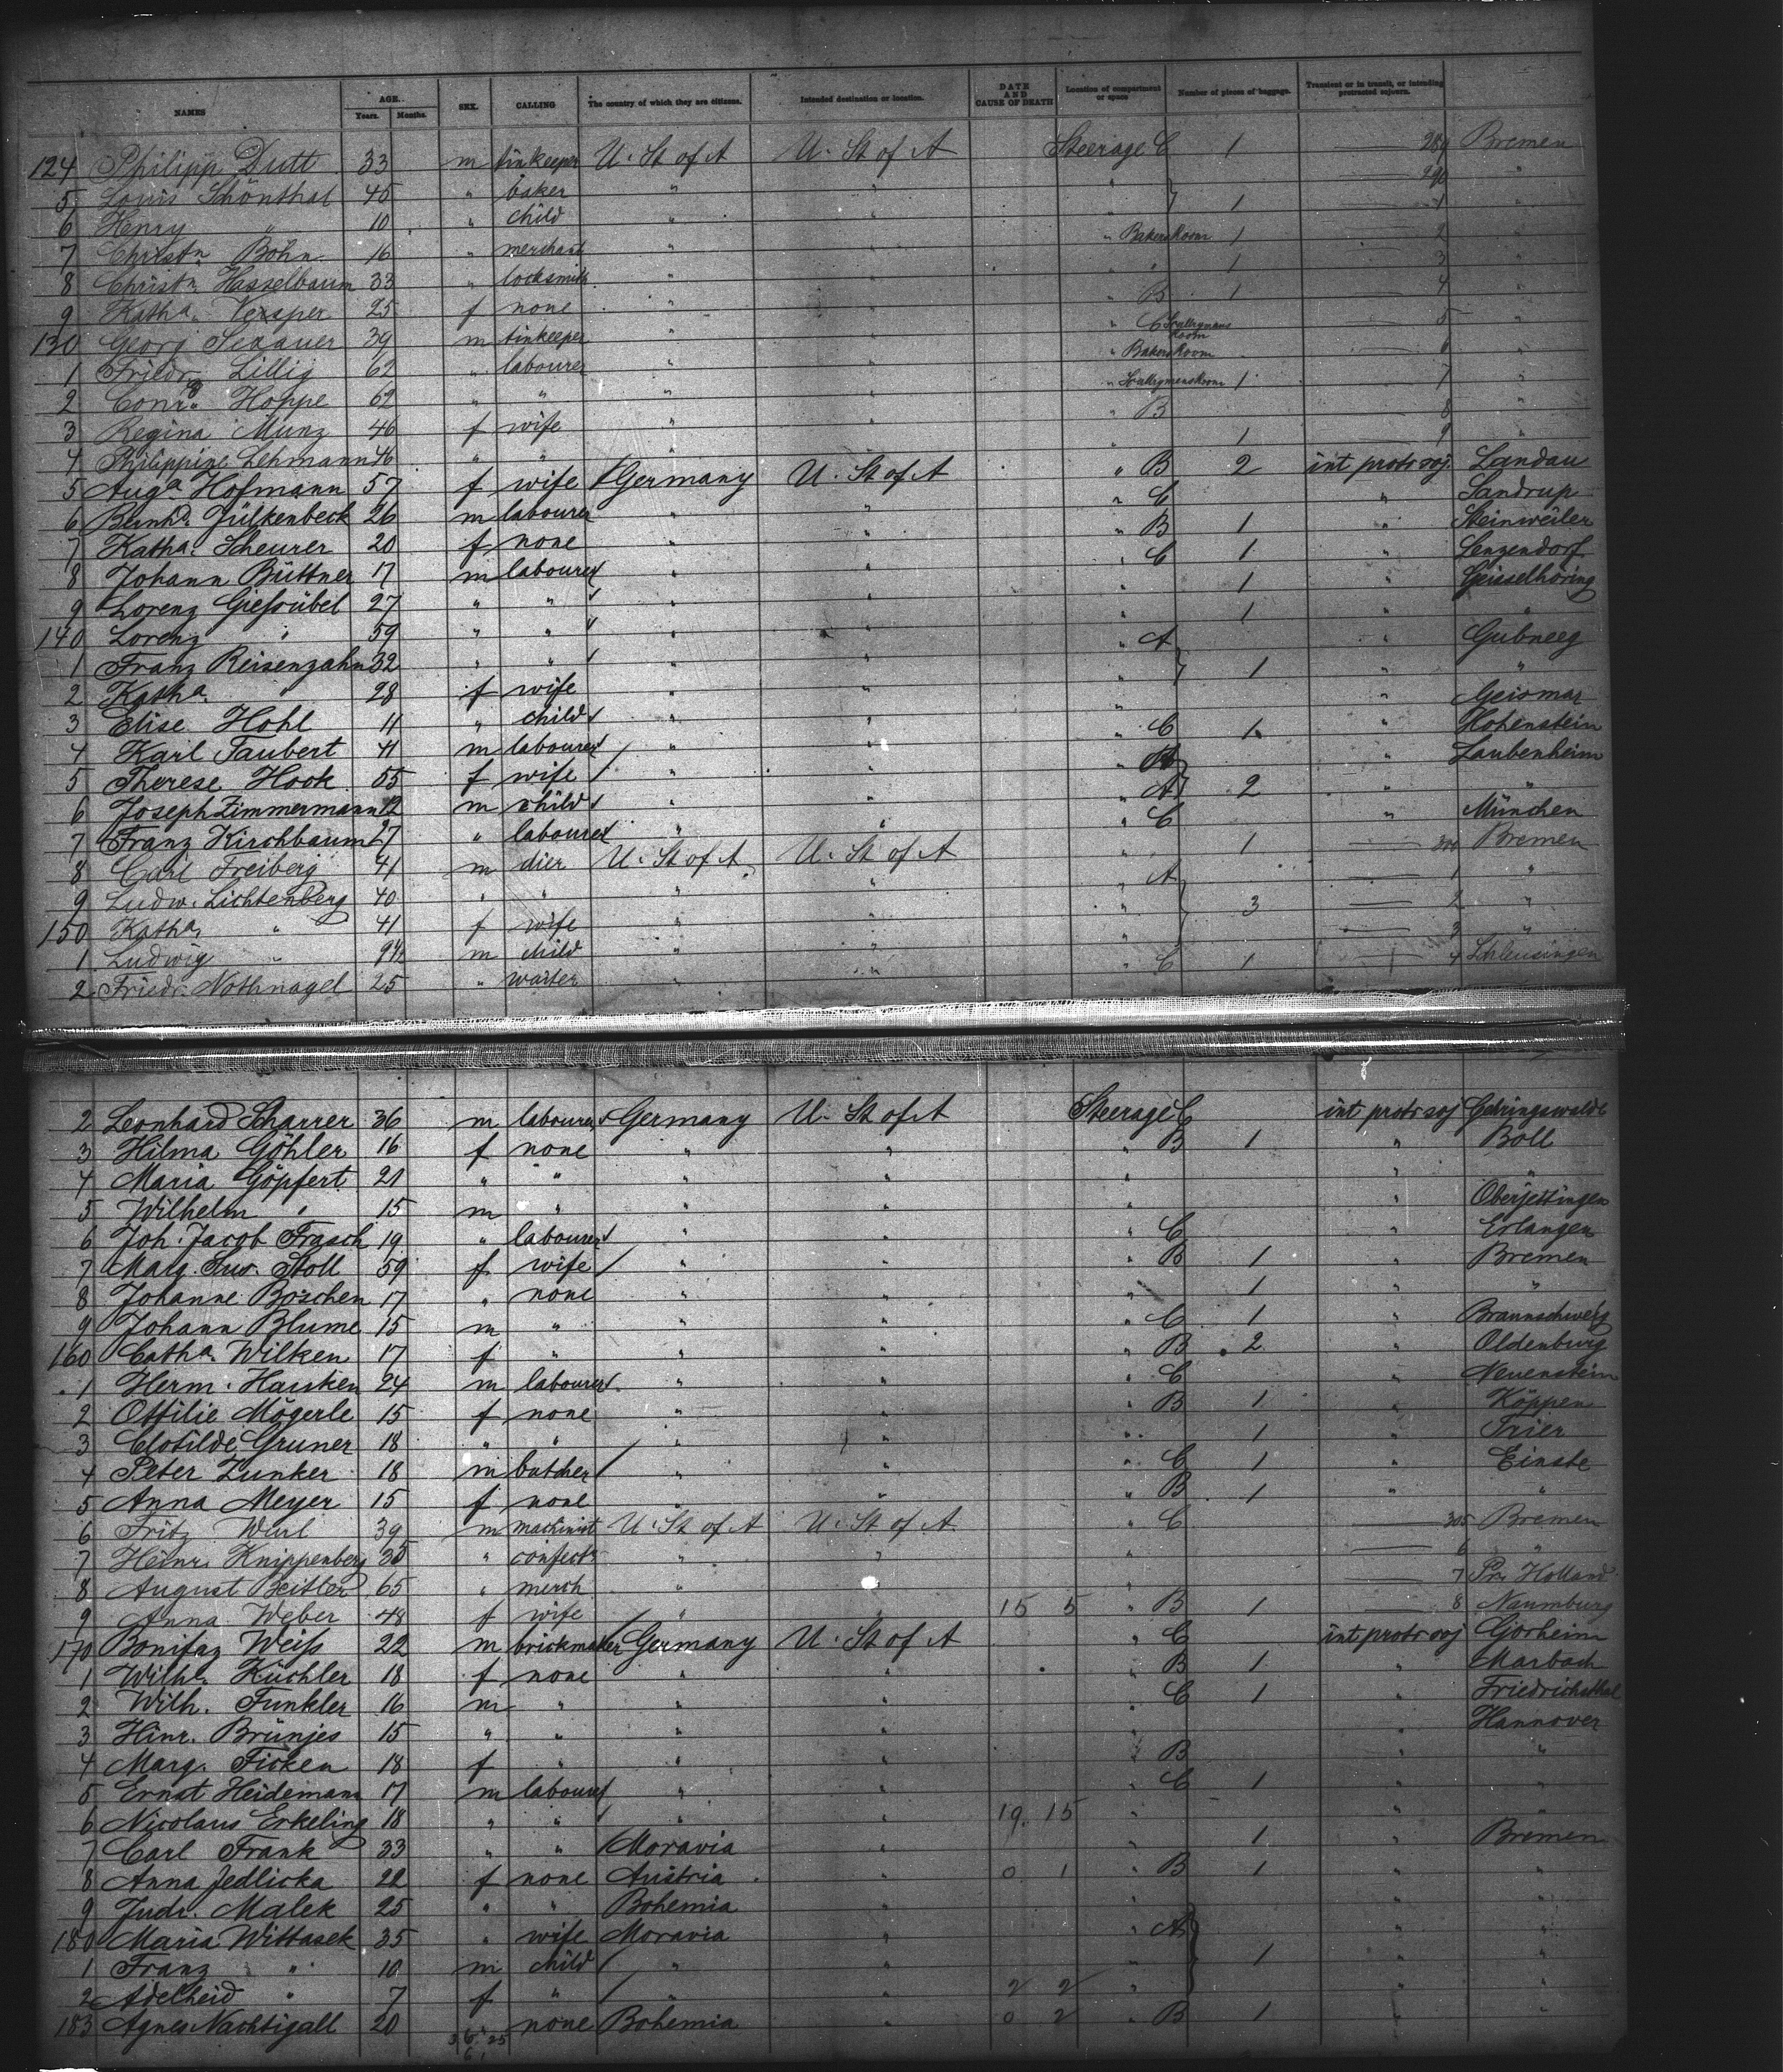 NAMES AGE. Years. Months. SEX. CALLING The country of which they are citizens. Intended destination or location. DATE AND CAUSE OF DEATH Location of compartment or space Number of pieces of baggage. Transient or in transit, or intending protracted sojourn.
124 Philipp Dutt 33 m tinkeeper U. St of A U. St of A Steerage C 1 289 Bremen
5 Louis Schönthal 45 " baker " " " 290 "
6 Henry " 10 " child " " " 1 1 "
7 Christn Bohn 16 " merchant " " " Bakers Room 1 2 "
8 Christn Hasselbaum 33 " locksmith " " " " 1 3 "
9 Katha. Vesper 25 f none " " " B 1 4 "
130 Georg Sexauer 39 m tinkeeper " " " C Scullrymans Room 5 "
1 Friedr. Lillig 62 " labourer " " " Bakers Room 6 "
2 Conrd Hoppe 62 " " " " " 1 7 "
3 Regina Munz 46 f wife " " " B 8 "
4 Philippine Lehmann 46 " " " " " 1 9 "
5 Auga Hofmann 57 f wife Germany U. St of A " B 2 int protr soj. Landau
6 Bernhd. Jülkenbeck 26 m labourer " " " C " Sandrup
7 Katha. Scheurer 20 f none " " " B 1 " Steinweiler
8 Johann Büttner 17 m labourer " " " C 1 " Lenzendorf
9 Lorenz Giefsübel 27 " " " " " 1 " Geisselhöring
140 Lorenz " 59 " " " " " 1 " "
1 Franz Reisenzahn 32 " " " " " A "
2 Katha. " 28 f wife " " " 1 " "
3 Elise Hohl 11 " child " " " " Geismar
4 Karl Taubert 41 m labourer " " " C 1 " Hohenstein
5 Therese Hook 55 f wife " " " A " Laubenheim
6 Joseph Zimmermann 12 m child " " " A 2 " "
7 Franz Kirchbaum 27 " labourer " " " C " München
8 Carl Freiberg 41 m dier U. St of A U. St of A " 1 300 Bremen
9 Ludw. Lichtenberg 40 " " " " " A 1 "
150 Katha. " 41 f wife " " " 3 2 "
1 Ludwig " m child " " " 3 "
2 Friedr. Nothnagel 25 " waiter " " " C 1 4 Schleusingen
2 Leonhard Scharrer 36 m labourer Germany U. St of A Steerage C int protr soj Gehringswalde
3 Hilma Göhler 16 f none " " " B 1 " Boll
4 Maria Göpfert 21 " " " " " " "
5 Wilhelm " 15 m " " " " " Oberjettingen
6 Joh. Jacob Frasch 19 " labourer " " " C " Erlangen
7 Marg. Sus. Stoll 59 f wife " " " B 1 " Bremen
8 Johanne Böschen 17 " none " " " 1 " "
9 Johann Blume 15 m " " " " C 1 " Braunschweig
160 Catha. Wilken 17 f " " " " B 2 " Oldenburg
1 Herm. Harsken 24 m labourer " " " C " Neuenstein
2 Ottilie Mögerle 15 f none " " " B 1 " Köppen
3 Clotilde Gruner 18 " " " " " 1 " Trier
4 Peter Zunker 18 m butcher " " " C 1 " Einste
5 Anna Meyer 15 f none " " " B 1 " "
6 Fritz 39 m machinist U. St of A U. St of A " C 305 Bremen
7 Heinr. Knippenberg 35 " confectr " " " 6 "
8 August Beitler 65 " merch " " 7 Pr. Holland
9 Anna Weber 48 f wife " " 15 5 " B 1 8 Naumburg
170 Bonifaz Weifs 22 m brickmaker Germany U. St of A " C int protr soj Gorheim
1 Wilhe. Küchler 18 f none " " " B 1 " Marbach
2 Wilh. Funkler 16 m " " " " C 1 " Friedrichsthal
3 Hinr. Brünjes 15 " " " " " " Hannover
4 Marg. Ficken 18 f " " " " B " "
5 Ernst Heidemann 17 m labourer " " " C 1 " "
6 Nicolaus Erkeling 18 " " " " 19. 15 " " "
7 Carl Frank 33 " " Moravia " " 1 " Bremen
8 Anna Jedlicka 22 f none Austria " 0 1 " B 1 " "
9 Judr. Malek 25 " " Bohemia " " " "
180 Maria Wittasek 35 " wife Moravia " " A " "
1 Franz " 10 m child " " " 1 " "
2 Adelheid " 7 f " " " 2 2 " " "
183 Agnes Nachtigall 20 " none Bohemia " 0 2 " B 1 " "